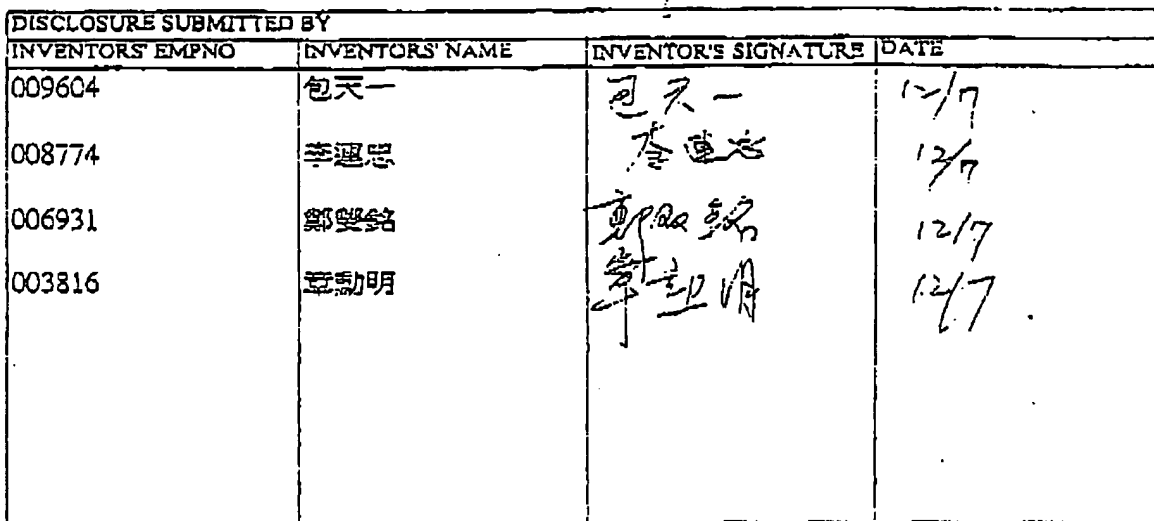 DISCLOSURE SUBMITTED BY
INVENTORS' EMPNO INVENTORS' NAME INVENTOR'S SIGNATURE DATE
009604 包天一 包天一 12/7
008774 李運忠 李運忠 12/7
006931 鄭雙銘 鄭双銘 12/7
003816 章勳明 章勳明 12/7